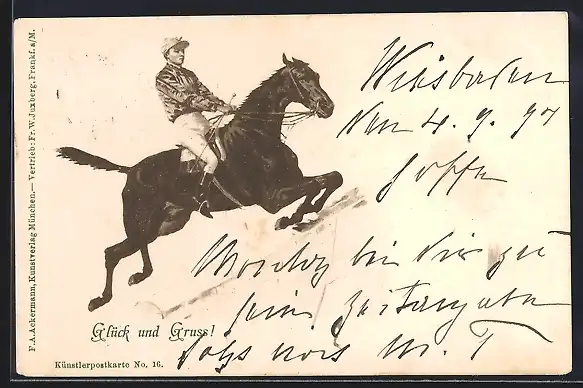 F. A. Ackermann, Kunstverlag München. — Vertrieb: Fr. W. Juxberg, Frankf. a/M.
Wiesbaden
den 4. 9. 97
hoffe
Montag bei Dir zu
sein
Glück und Gruss!
Künstlerpostkarte No. 16.